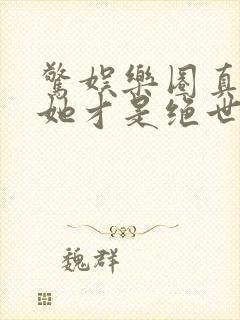 驚娛樂圈真
她才是絕世
魏群